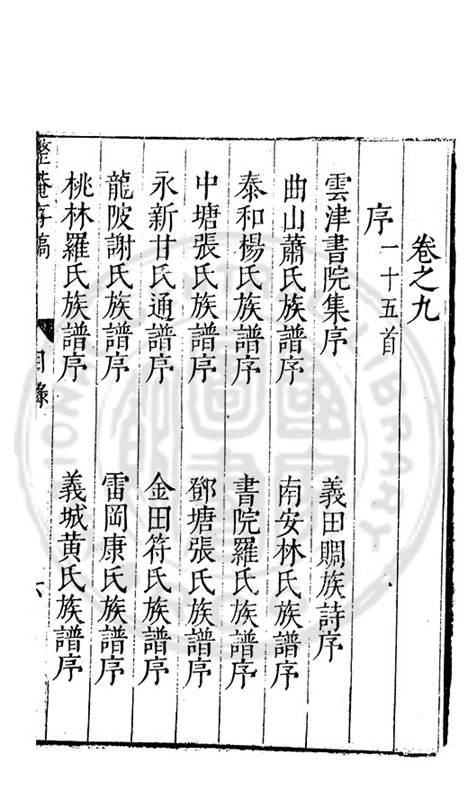 卷之九
序一十五首
雲津書院集序 義田賙族詩序
曲山蕭氏族譜序 南安林氏族譜序
泰和楊氏族譜序 書院羅氏族譜序
中塘張氏族譜序 鄧塘張氏族譜序
永新甘氏通譜序 金田符氏族譜序
龍陂謝氏族譜序 雷岡康氏族譜序
桃林羅氏族譜序 義城黃氏族譜序
整菴存稿 目錄 六